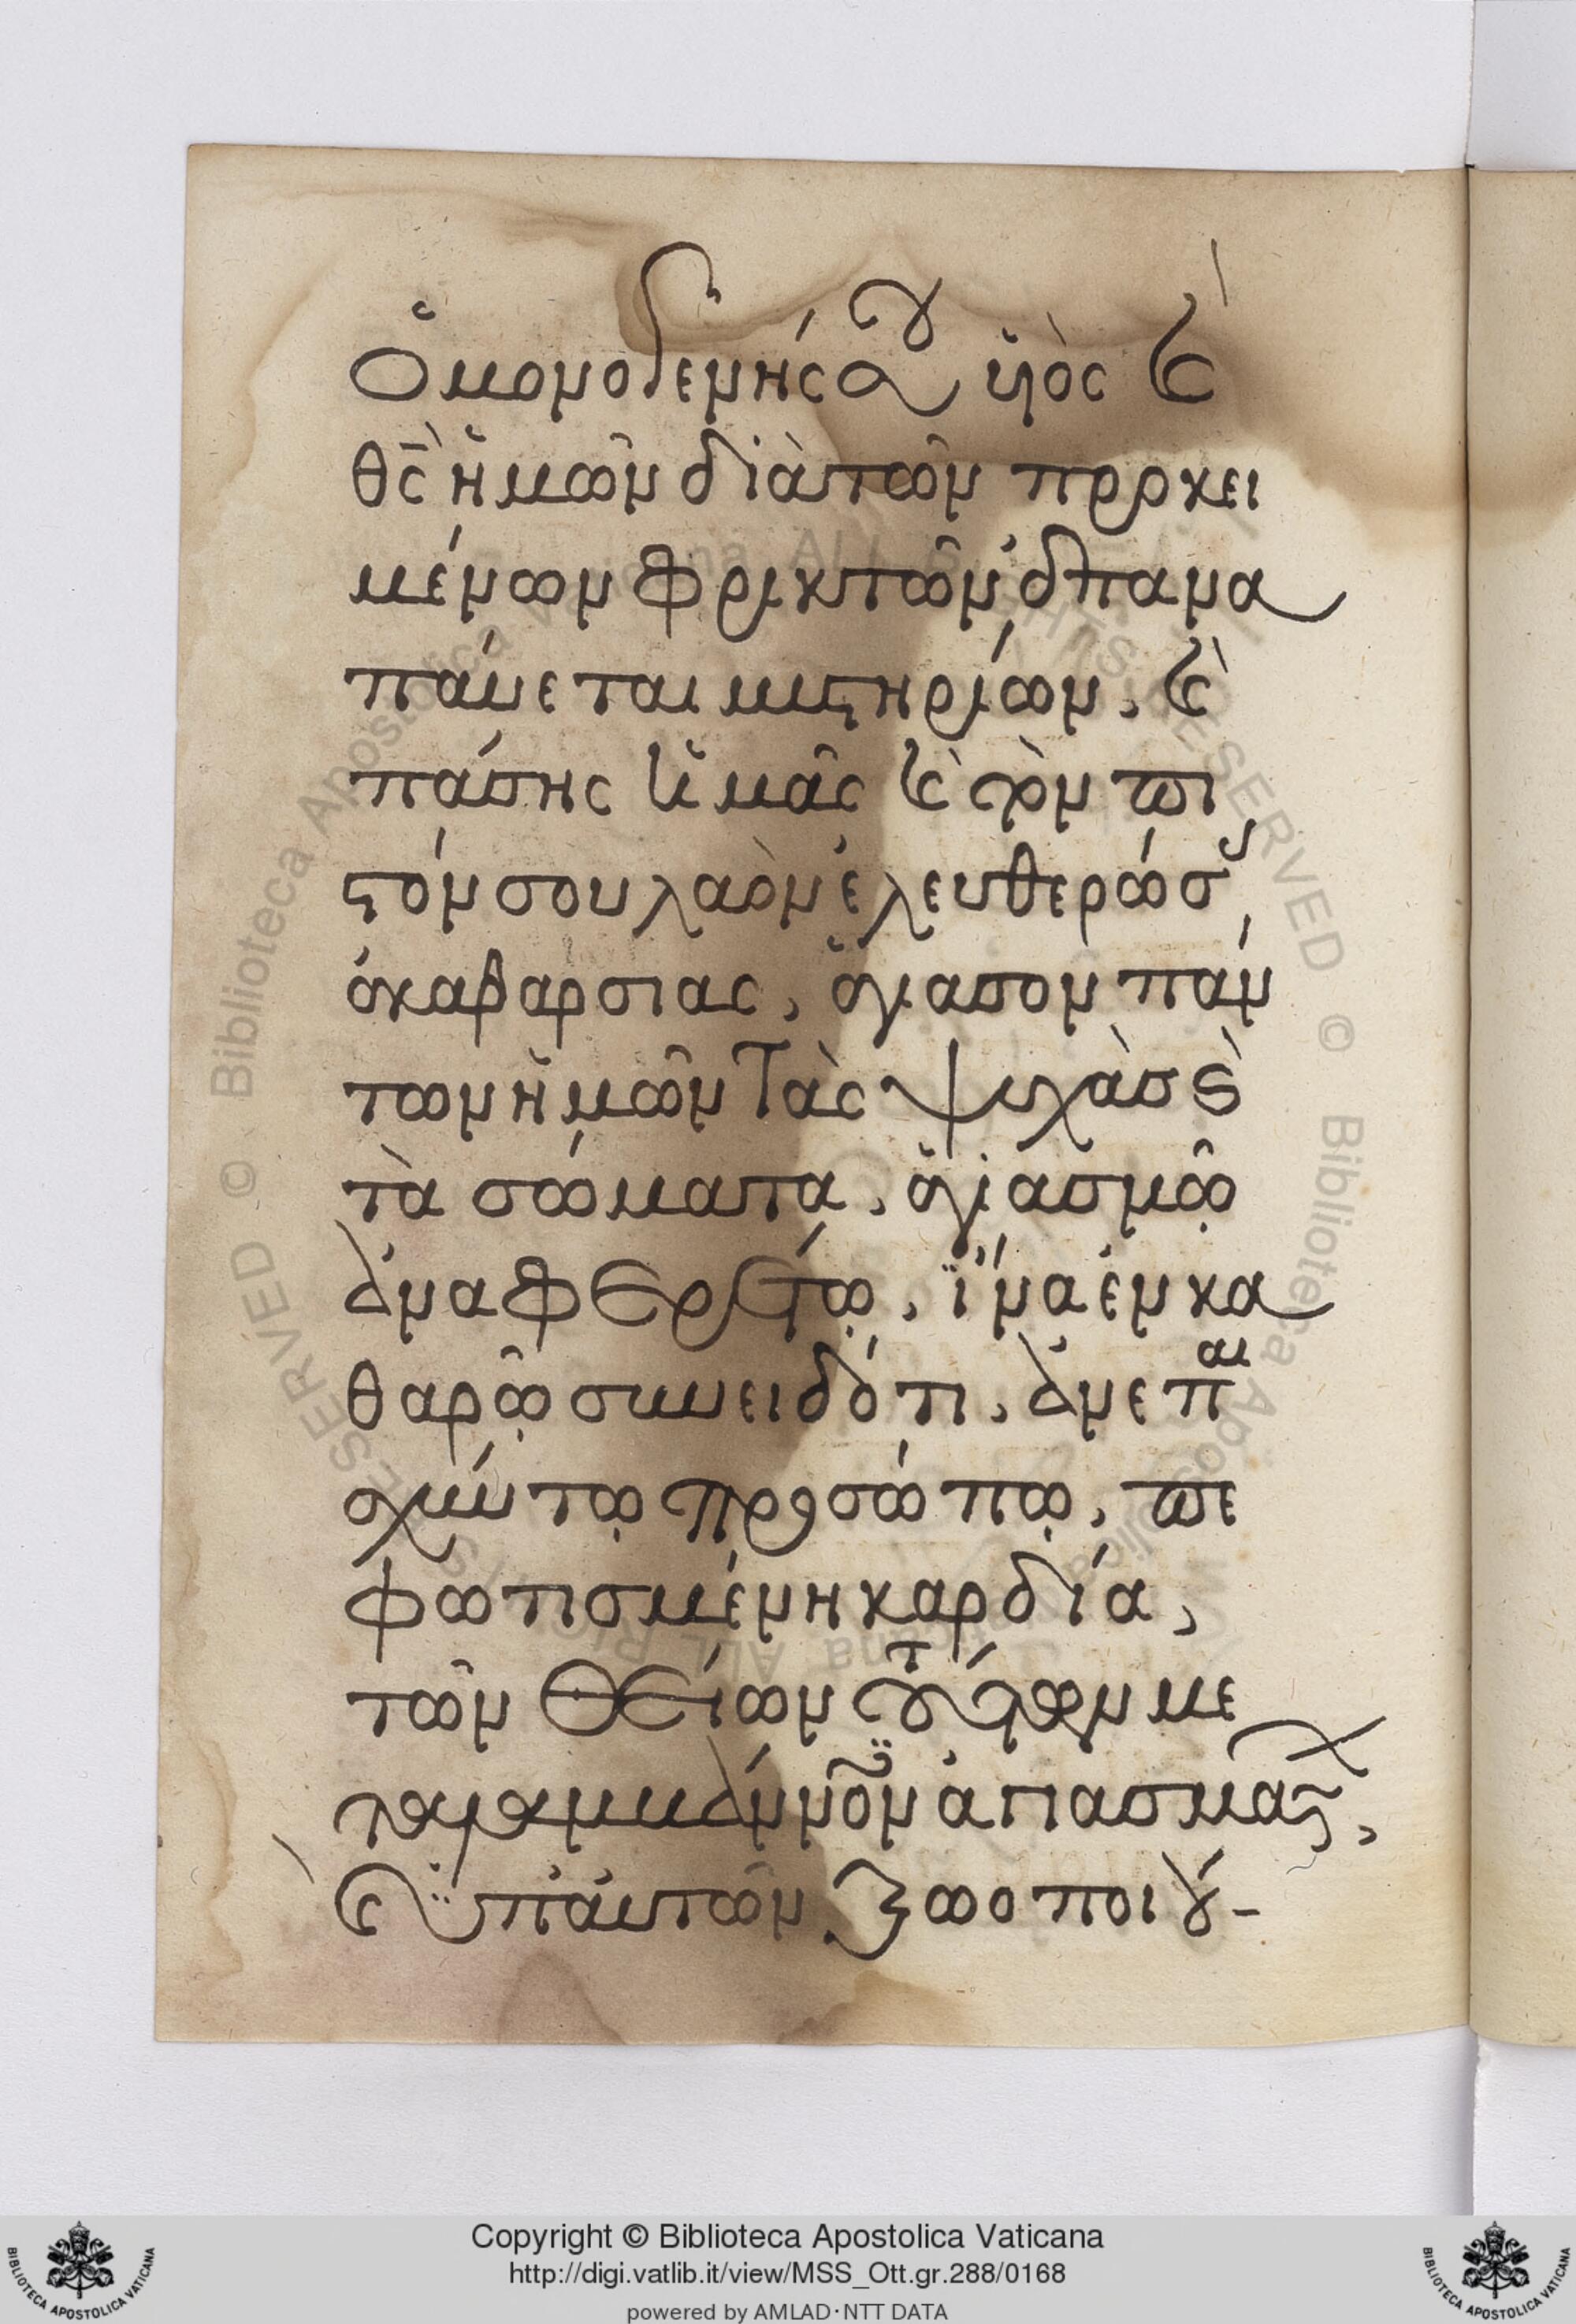 Ὁ μονογενής σου υἱὸς καὶ
θς ἡμῶν διὰ τῶν προκει
μένων φρικτῶν ἐπανα
παύεται μυστηρίων, καὶ
πάσης ἡμᾶς καὶ τὸν πι
στόν σου λαὸν ἐλευθέρωσον
ἀκαθαρσίας, ἁγίασον πάν
των ἡμῶν τὰς ψυχὰς καὶ
τὰ σώματα, ἁγιασμῷ
ἀναφερέτῳ, ἵνα ἐν κα
θαρῷ συνειδότι, ἀνεπαι
σχύντῳ προσώπῳ, πε
φωτισμένη καρδία,
τῶν θείων τούτων με
ταλαμβάνοντες ἁγιασμάτων,
καὶ ὑπ' αὐτῶν ζωοποιού-
Copyright © Biblioteca Apostolica Vaticana
http://digi.vatlib.it/view/MSS_Ott.gr.288/0168
powered by AMLAD·NTT DATA